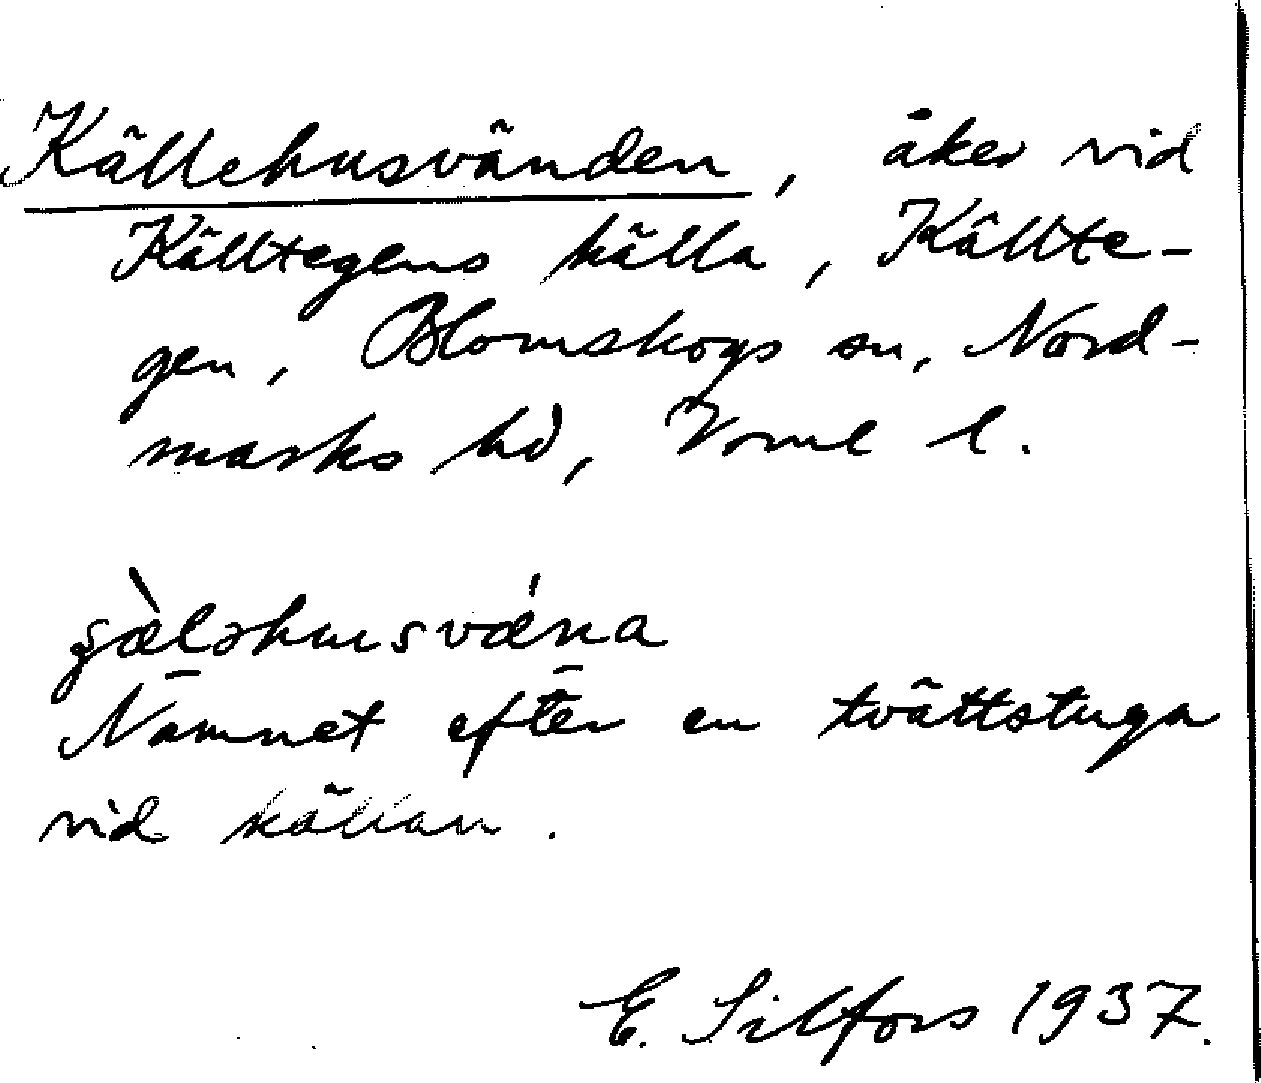 Källehusvänden, åker vid
Källtegens källa, Källte-
gen, Blomskogs sn, Nord-
marks hd, Vrml l.
ʂæ̀ləhusvǽna
Namnet efter en tvättstuga
vid källan.
E. Silfors 1937.